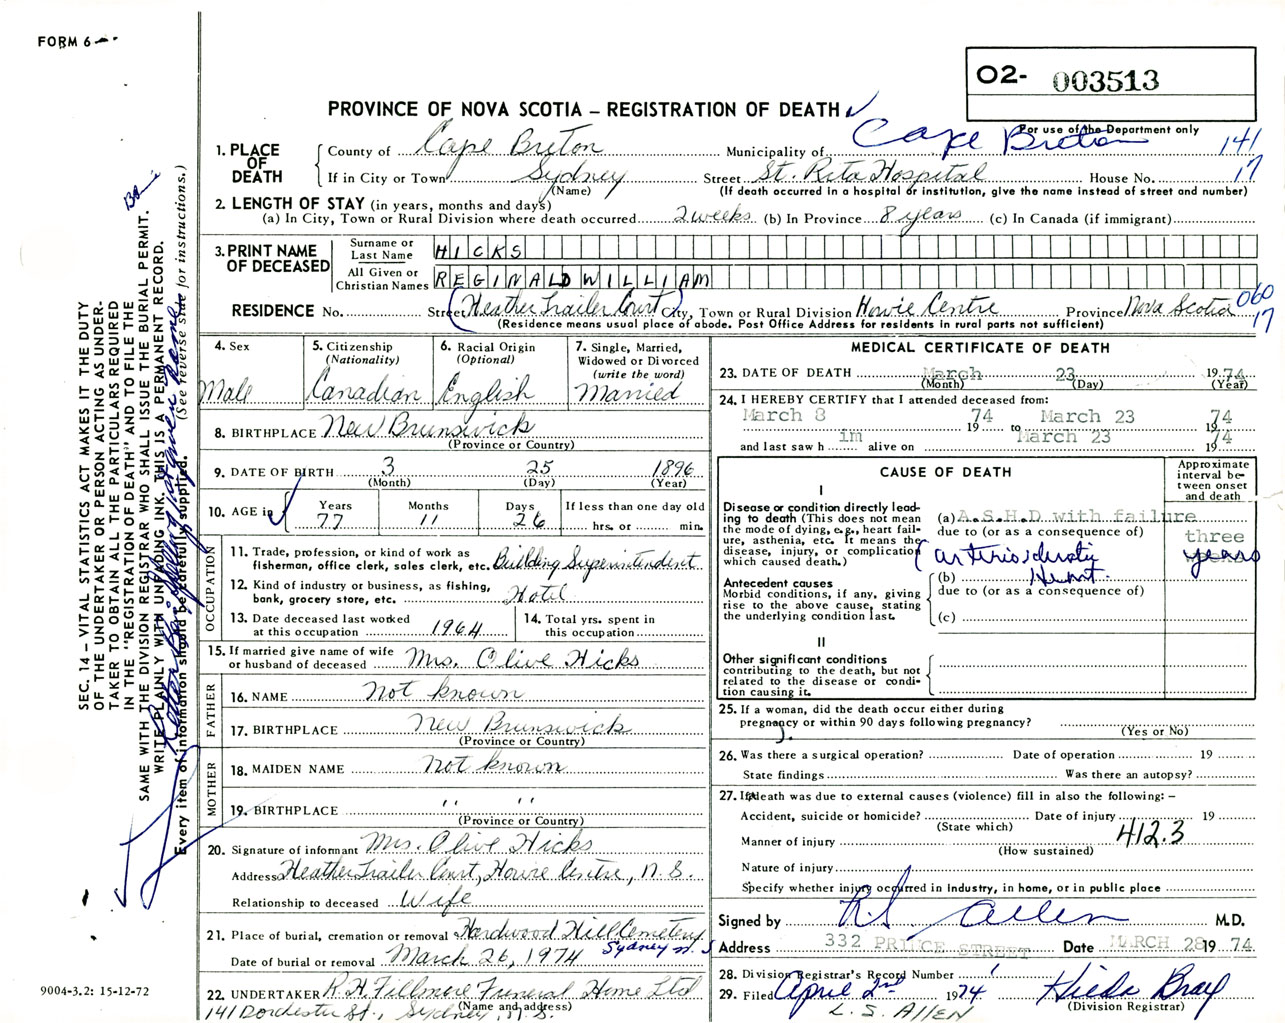 FORM 6
O2- 003513
PROVINCE OF NOVA SCOTIA – REGISTRATION OF DEATH
For use of the Department only
1. PLACE OF DEATH
County of Cape Breton Municipality of Cape Breton 141
If in City or Town Sydney Street St. Rita Hospital House No. 17
(Name) (If death occurred in a hospital or institution, give the name instead of street and number)
2. LENGTH OF STAY (in years, months and days)
(a) In City, Town or Rural Division where death occurred 2 weeks (b) In Province 8 years (c) In Canada (if immigrant)
3. PRINT NAME OF DECEASED
Surname or Last Name HICKS
All Given or Christian Names REGINALD WILLIAM
RESIDENCE No. Street (Heather Trailer Court) City, Town or Rural Division Howie Centre Province Nova Scotia 060 17
(Residence means usual place of abode. Post Office Address for residents in rural parts not sufficient)
4. Sex
Male
5. Citizenship
(Nationality)
Canadian
6. Racial Origin
(Optional)
English
7. Single, Married, Widowed or Divorced
(write the word)
Married
8. BIRTHPLACE New Brunswick
(Province or Country)
9. DATE OF BIRTH 3 25 1896
(Month) (Day) (Year)
10. AGE in
Years Months Days If less than one day old
77 11 26 hrs. or min.
OCCUPATION
11. Trade, profession, or kind of work as
fisherman, office clerk, sales clerk, etc. Building Superintendent
12. Kind of industry or business, as fishing,
bank, grocery store, etc. Hotel
13. Date deceased last worked
at this occupation 1964
14. Total yrs. spent in
this occupation
15. If married give name of wife
or husband of deceased Mrs. Olive Hicks
FATHER
16. NAME Not known
17. BIRTHPLACE New Brunswick
(Province or Country)
MOTHER
18. MAIDEN NAME Not known
19. BIRTHPLACE " "
(Province or Country)
20. Signature of informant Mrs. Olive Hicks
Address Heather Trailer Court, Howie Centre, N.S.
Relationship to deceased Wife
21. Place of burial, cremation or removal Hardwood Hill Cemetery
Sydney N.S
Date of burial or removal March 26, 1974
22. UNDERTAKER R.H. Fillmore Funeral Home Ltd
(Name and address)
141 Dorchester St., Sydney, N.S.
MEDICAL CERTIFICATE OF DEATH
23. DATE OF DEATH March 23 1974
(Month) (Day) (Year)
24. I HEREBY CERTIFY that I attended deceased from:
March 8 1974 to March 23 1974
and last saw him alive on March 23 1974
CAUSE OF DEATH
Approximate interval between onset and death
I
Disease or condition directly leading to death (This does not mean the mode of dying, e.g., heart failure, asthenia, etc. It means the disease, injury, or complication which caused death.)
(a) A.S.H.D with failure
due to (or as a consequence of)
three years
Heart
Antecedent causes
Morbid conditions, if any, giving rise to the above cause, stating the underlying condition last.
(b)
due to (or as a consequence of)
(c)
II
Other significant conditions
contributing to the death, but not related to the disease or condition causing it.
25. If a woman, did the death occur either during
pregnancy or within 90 days following pregnancy?
(Yes or No)
26. Was there a surgical operation? Date of operation 19
State findings Was there an autopsy?
27. If death was due to external causes (violence) fill in also the following: –
Accident, suicide or homicide? Date of injury 19
(State which)
Manner of injury 412.3
(How sustained)
Nature of injury
Specify whether injury occurred in industry, in home, or in public place
Signed by R S Allen M.D.
Address 332 PRINCE STREET Date MARCH 28 1974
28. Division Registrar's Record Number 1
29. Filed April 2nd 1974 Hilda Bray
(Division Registrar)
L. S. ALLEN
SEC. 14 – VITAL STATISTICS ACT MAKES IT THE DUTY
OF THE UNDERTAKER OR PERSON ACTING AS UNDER-
TAKER TO OBTAIN ALL THE PARTICULARS REQUIRED
IN THE "REGISTRATION OF DEATH" AND TO FILE THE
SAME WITH THE DIVISION REGISTRAR WHO SHALL ISSUE THE BURIAL PERMIT.
WRITE PLAINLY WITH UNFADING INK. THIS IS A PERMANENT RECORD.
Every item of information should be carefully supplied. (See reverse side for instructions.)
9004-3.2: 15-12-72